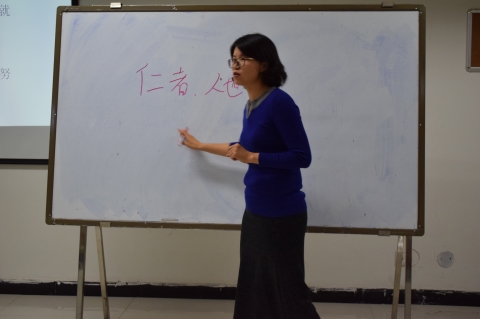 就
努
仁者、人也